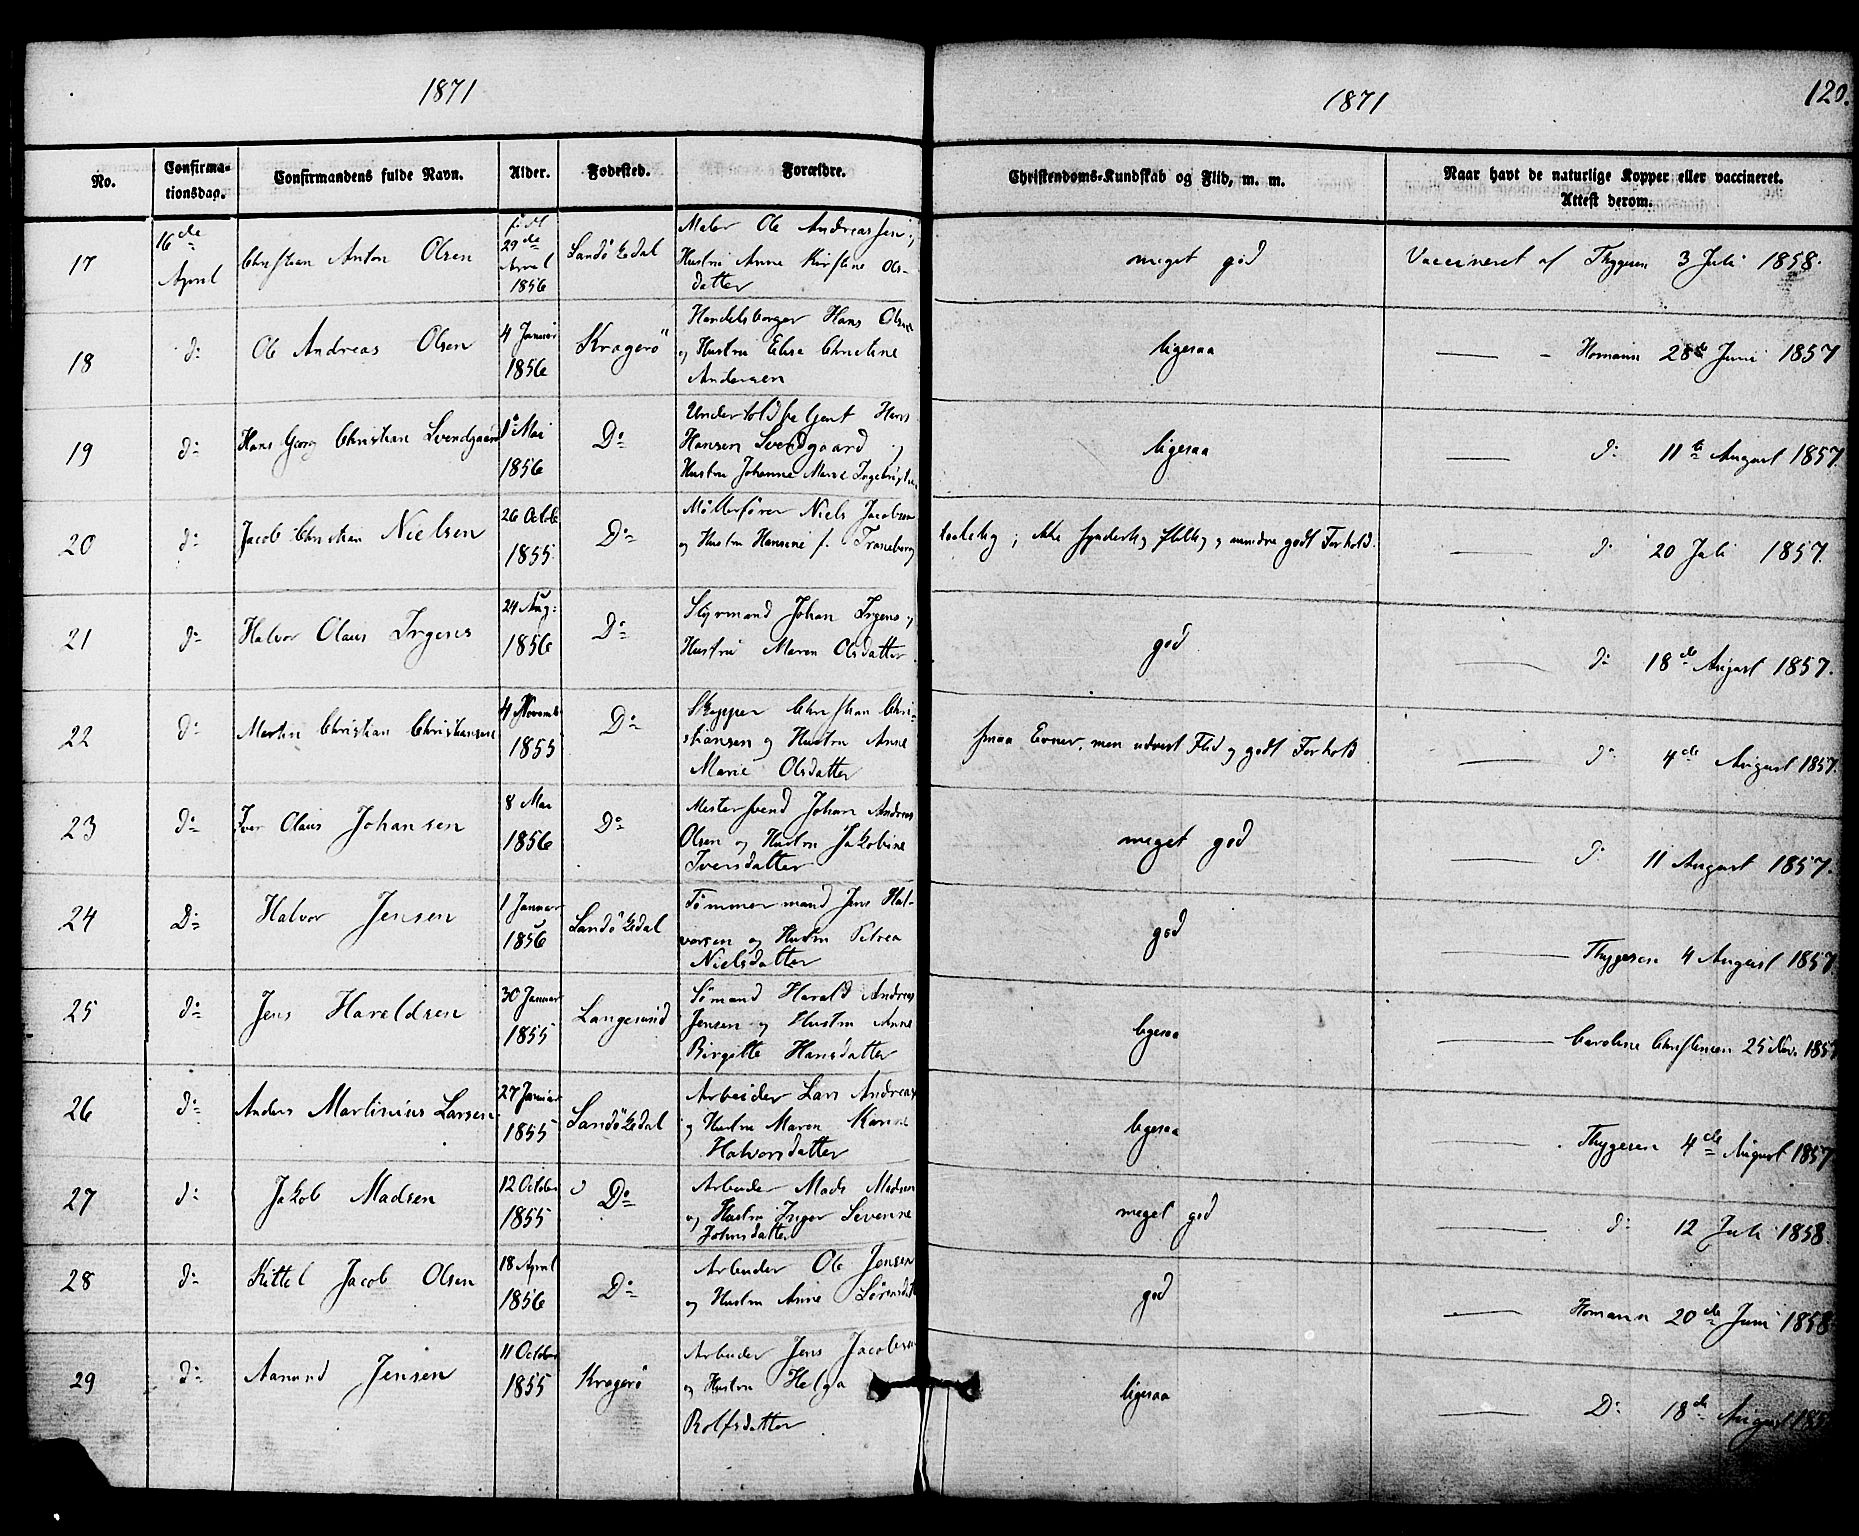 1871
No.
Confirma-
tionsdag.
Confirmandens fulde Navn.
Alder.
Fødested.
Forældre.
17
16de
April
Christian Anton Olsen
født
29de
April
1856
Sandökedal
Maler Ole Andreas Jensen og
Hustru Anne Kirstine Ols-
datter
18
do
Ole Andreas Olsen
4 Januar
1856
Kragerö
Handelsborger Hans Olsen
og Hustru Elise Christine
Andersen
19
do
Hans Georg Christian Svendgaard
1 Mai
1856
Do
Undertoldbetjent Hans
Hansen Svendgaard og
Hustru Johanne Marie Ingebrigtsen
20
do
Jacob Christian Nielsen
26 Octob
1855
Do
Möllerförer Niels Jacobsen
og Hustru Hansine f. Traneborg
21
do
Halvor Olaus Irgens
24 Aug:
1856
Do
Styrmand Johan Irgens og
Hustru Maren Olsdatter
22
do
Martin Christian Christiansen
4 Novemb
1855
Do
Skipper Christian Chri-
stiansen og Hustru Anne
Marie Olsdatter
23
do
Iver Olaus Johansen
8 Mai
1856
Do
Mestersvend Johan Andreas
Olsen og Hustru Jakobine
Iversdatter
24
Do
Halvor Jensen
1 Januar
1856
Sandökedal
Tömmermand Jens Hal-
vorsen og Hustru Petrea
Nielsdatter
25
do
Jens Haraldsen
30 Januar
1855
Langesund
Sömand Harald Andreas
Jensen og Hustru Anne
Birgitte Hansdatter
26
do
Anders Martinius Larsen
27 Januar
1855
Sandökedal
Arbeider Lars Andreas
og Hustru Maren Karine
Halvorsdatter
27
do
Jakob Madsen
12 October
1855
Do
Arbeider Mads Madsen
og Hustru Inger Severine
Johnsdatter
28
do
Kittel Jacob Olsen
18 April
1856
Do
Arbeider Ole Jensen
og Hustru Anne Sörensdat
29
do
Aanund Jensen
11 October
1855
Kragerö
Arbeider Jens Jacobsen
og Hustru Helga
Rolfsdatter
1871
120.
Christendoms-Kundskab og Flid, m. m.
Naar havt de naturlige Kopper eller vaccineret.
Attest derom.
meget god
Vaccineret af Thygesen 3 Juli 1858.
ligesaa
— - Homann 28de Juni 1857
ligesaa
— do 11te August 1857.
taalelig; ikke synderlig flittig; mindre godt Forhold.
— do 20 Juli 1857.
god
— do 18de August 1857.
smaa Evner, men udvist Flid og godt Forhold
— do 4de August 1857.
meget god
— do 11 August 1857.
god
— Thygesen 4 August 1857
ligesaa
— Caroline Christensen 25 Nov. 185
ligesaa
— Thygesen 4de August 1857
meget god
— do 12 Juli 1858.
god
— Homann 20de Juni 1858
ligesaa
— Do 18de August 185